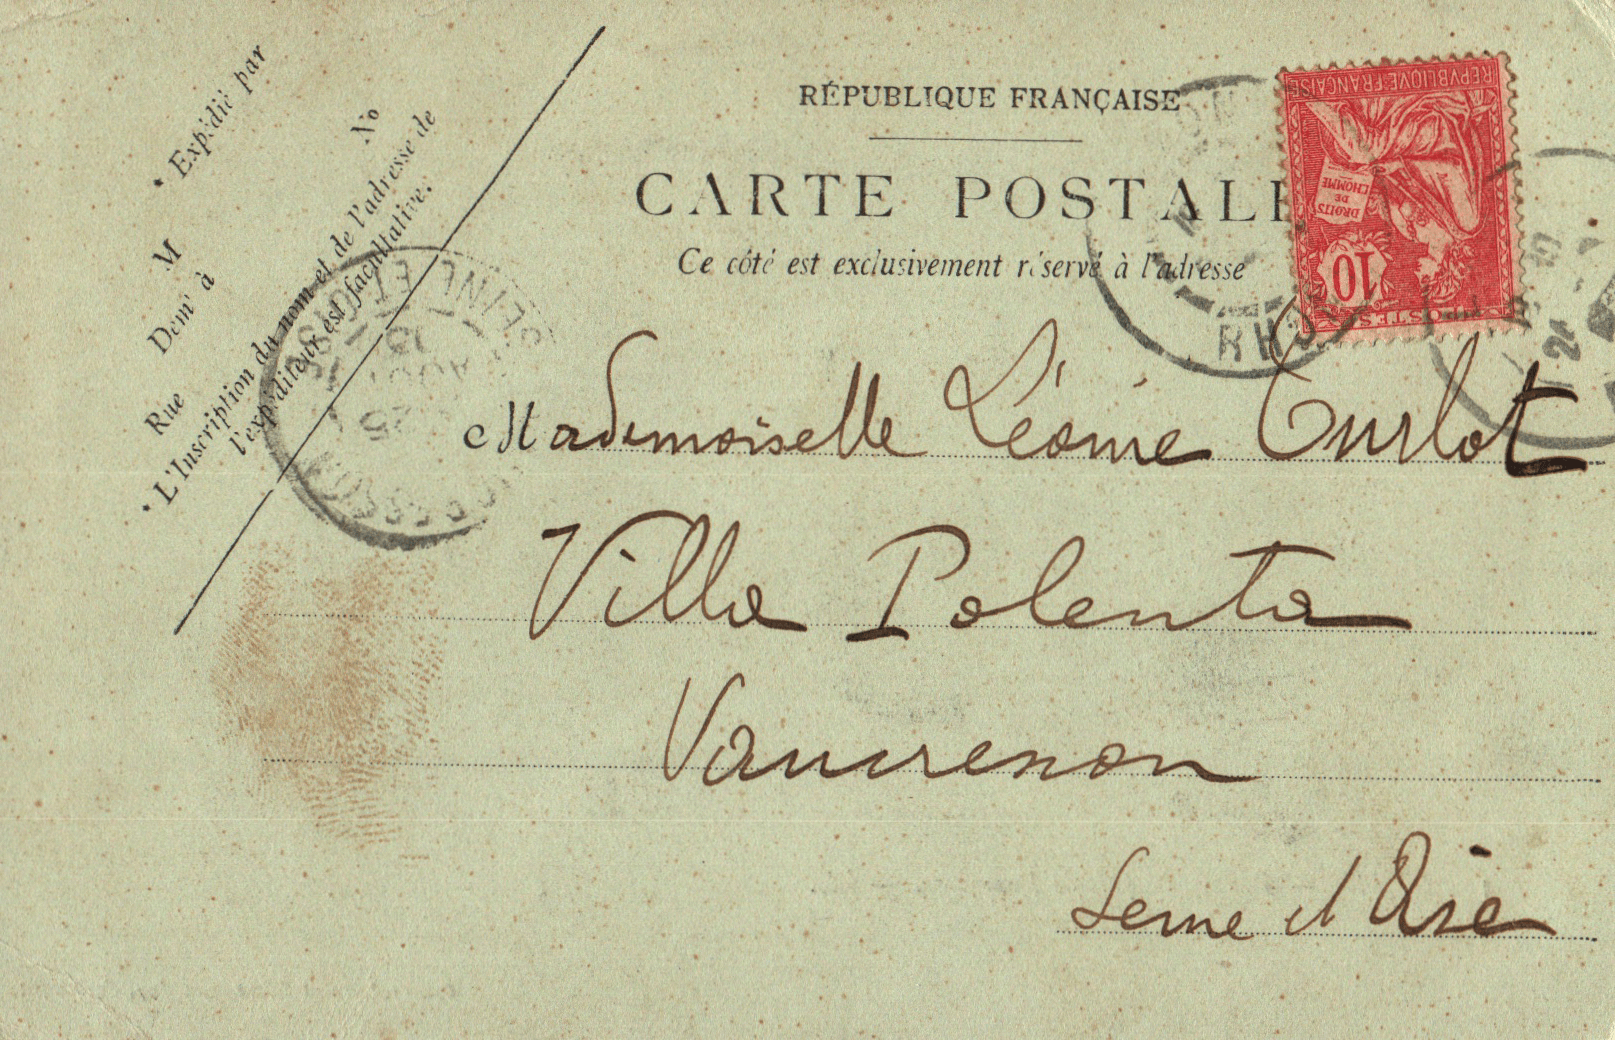 * Expédié par
M
Dem^t à
Rue
N°
* L'Inscription du nom et de l'adresse de
l'expéditeur est facultative.
RÉPUBLIQUE FRANÇAISE
CARTE POSTALE
Ce côté est exclusivement réservé à l'adresse
REPVBLIQVE FRANÇAISE
DROITS
DE
L'HOMME
10
POSTES
RHONE
SEINE ET OISE
15
AOUT
Mademoiselle Léonie Turlot
Villa Polenta
Vaucresson
Seine et Oise